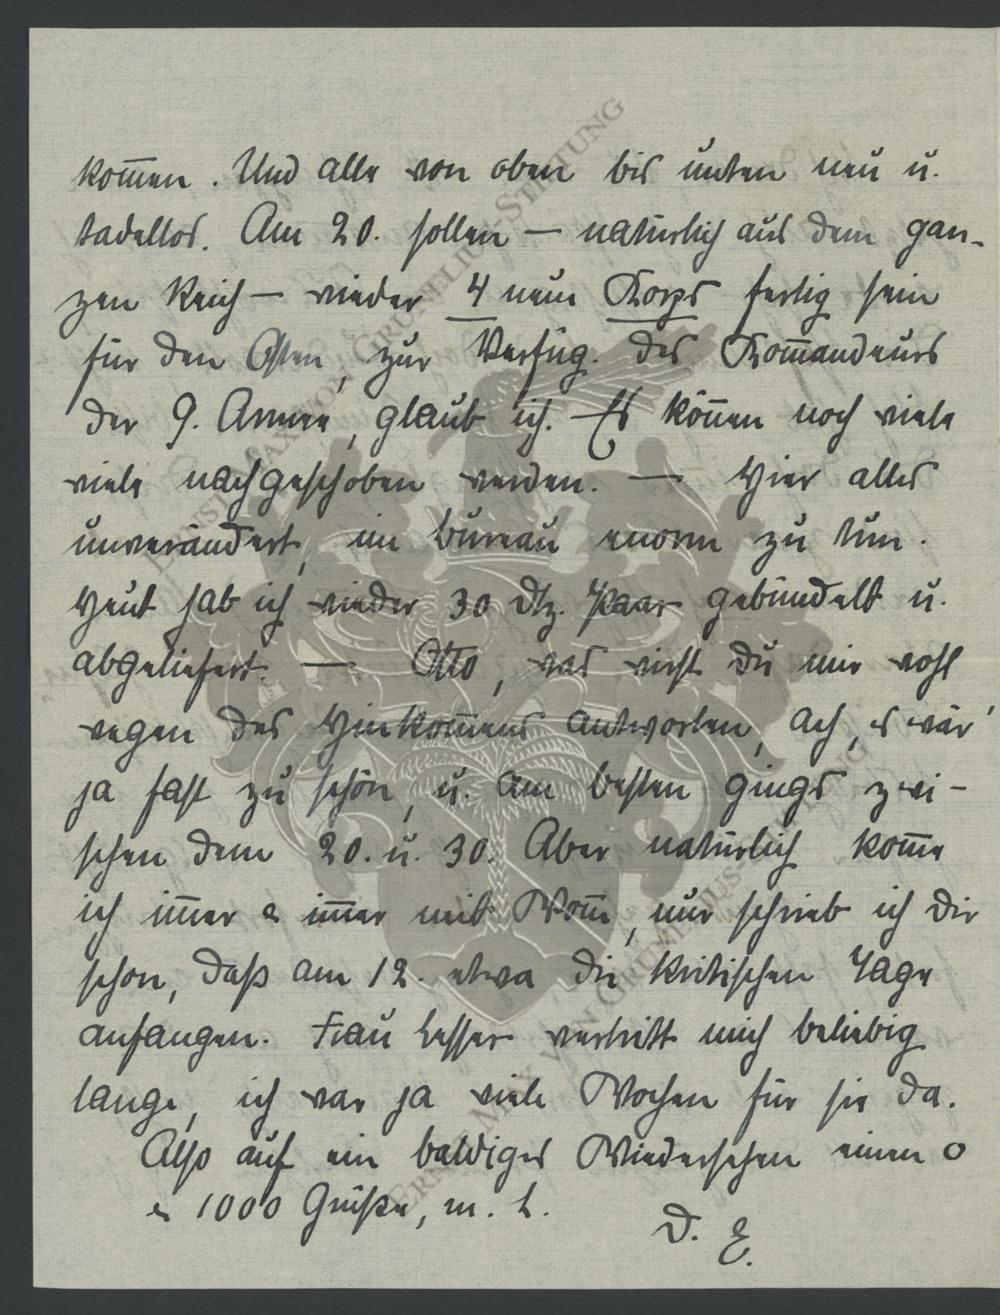 kom̄en. Und alle von oben bis unten neu u.
tadellos. Am 20. sollen — natürlich aus dem gan-
zen Reich — wieder 4 neue Korps fertig sein
für den Osten, zur Verfüg. des Kom̄andeurs
der 9. Armee, glaub ich. Es kön̄en noch viele
viele nachgeschoben werden. — Hier alles
unverändert, im bureau enorm zu tun.
Heut hab ich wieder 30 Dtz. Paar gebündelt u.
abgeliefert. — Otto, was wirst Du mir wohl
wegen des Hinkom̄ens antworten, ach, es wär'
ja fast zu schön, u. am besten gings zwi-
schen dem 20. u. 30. Aber natürlich kom̄e
ich im̄er & im̄er mit Won̄e, nur schrieb ich Dir
schon, daß am 12. etwa die kritischen Tage
anfangen. Frau Lesser vertritt mich beliebig
lange, ich war ja viele Wochen für sie da.
Also auf ein baldiges Wiedersehen einen o
& 1000 Grüße, m. L.
D. E.
ERNST MAX VON GRUNELIUS-STIFTUNG
ERNST MAX VON GRUNELIUS-STIFTUNG